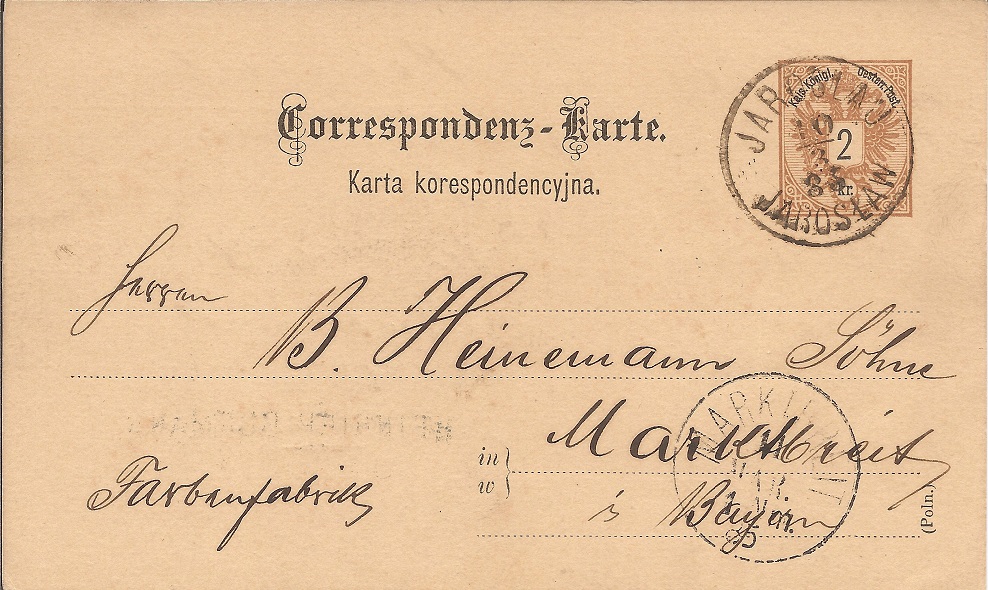 Kais. Königl. Oesterr. Post.
2
kr.
JAROSLAU
10
3
85
JAROSŁAW
Correspondenz-Karte.
Karta korespondencyjna.
Herren
B. Heinemann Söhne
in
w
Marktbreit
Farbenfabrik
i Bayern
(Poln.)
MAR.